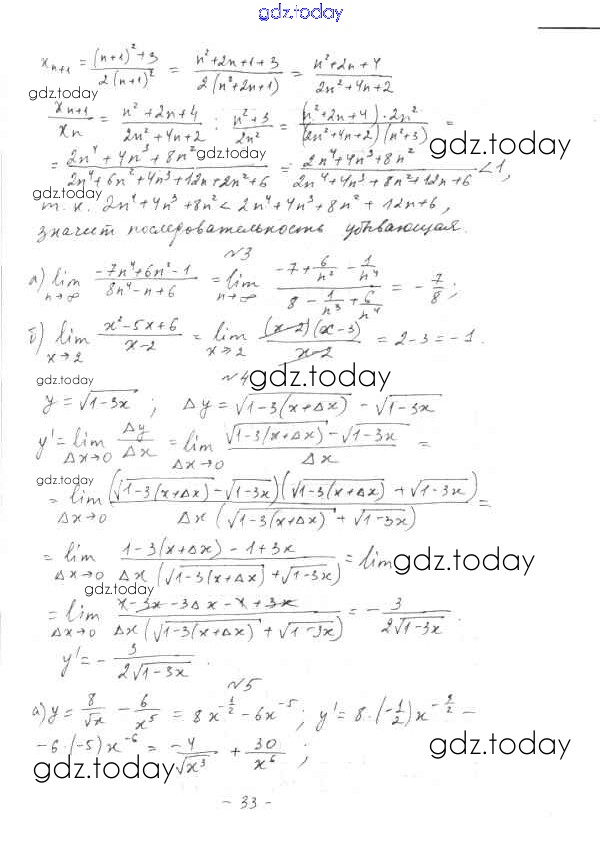 gdz.today
x_{n+1} = ((n+1)^2+3)/(2(n+1)^2) = (n^2+2n+1+3)/(2(n^2+2n+1)) = (n^2+2n+4)/(2n^2+4n+2)
gdz.today
x_{n+1}/x_n = (n^2+2n+4)/(2n^2+4n+2) : (n^2+3)/(2n^2) = ((n^2+2n+4)·2n^2)/((2n^2+4n+2)(n^2+3)) =
gdz.today
gdz.today
= (2n^4+4n^3+8n^2)/(2n^4+6n^2+4n^3+12n+2n^2+6) = (2n^4+4n^3+8n^2)/(2n^4+4n^3+8n^2+12n+6) < 1,
gdz.today
т.к. 2n^4+4n^3+8n^2 < 2n^4+4n^3+8n^2+12n+6,
значит последовательность убывающая.
№3
а) lim_{n→∞} (-7n^4+6n^2-1)/(8n^4-n+6) = lim_{n→∞} (-7+6/n^2-1/n^4)/(8-1/n^3+6/n^4) = -7/8;
б) lim_{x→2} (x^2-5x+6)/(x-2) = lim_{x→2} ((x-2)(x-3))/(x-2) = 2-3 = -1.
gdz.today
№4
gdz.today
y = √(1-3x); Δy = √(1-3(x+Δx)) - √(1-3x)
y' = lim_{Δx→0} Δy/Δx = lim_{Δx→0} (√(1-3(x+Δx)) - √(1-3x))/Δx =
gdz.today
= lim_{Δx→0} ((√(1-3(x+Δx)) - √(1-3x))(√(1-3(x+Δx)) + √(1-3x)))/(Δx(√(1-3(x+Δx)) + √(1-3x))) =
= lim_{Δx→0} (1-3(x+Δx)-1+3x)/(Δx(√(1-3(x+Δx)) + √(1-3x))) = lim
gdz.today
gdz.today
= lim_{Δx→0} (1-3x-3Δx-1+3x)/(Δx(√(1-3(x+Δx)) + √(1-3x))) = -3/(2√(1-3x))
y' = -3/(2√(1-3x)).
gdz.today
№5
а) y = 8/√x - 6/x^5 = 8x^{-1/2} - 6x^{-5}; y' = 8·(-1/2)x^{-3/2} -
gdz.today
-6·(-5)x^{-6} = -4/√x^3 + 30/x^6;
gdz.today
- 33 -
gdz.today